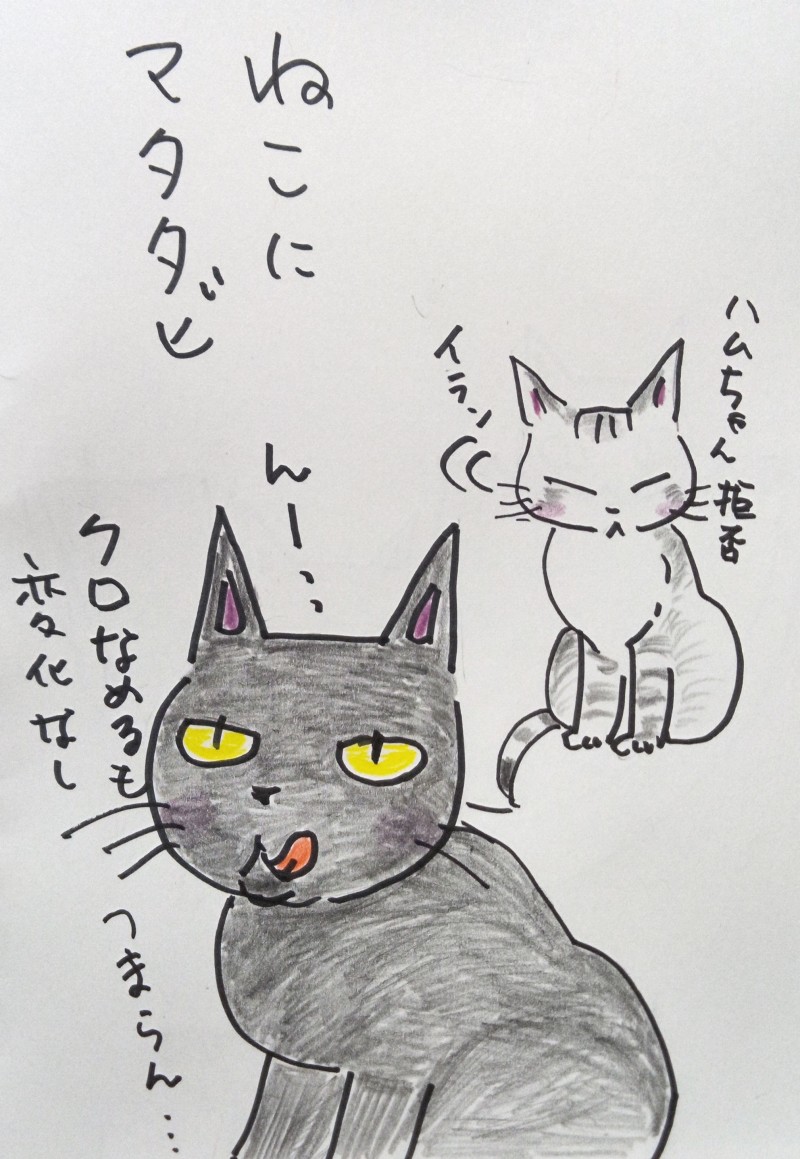 ねこに
マタタビ
ハムちゃん拒否
イラン
んー…
クロなめるも
変化なし
つまらん…